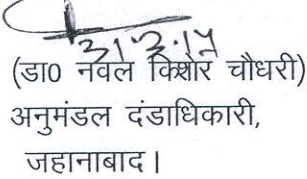 31.3.17
(डा0 नवल किशोर चौधरी)
अनुमंडल दंडाधिकारी,
जहानाबाद।